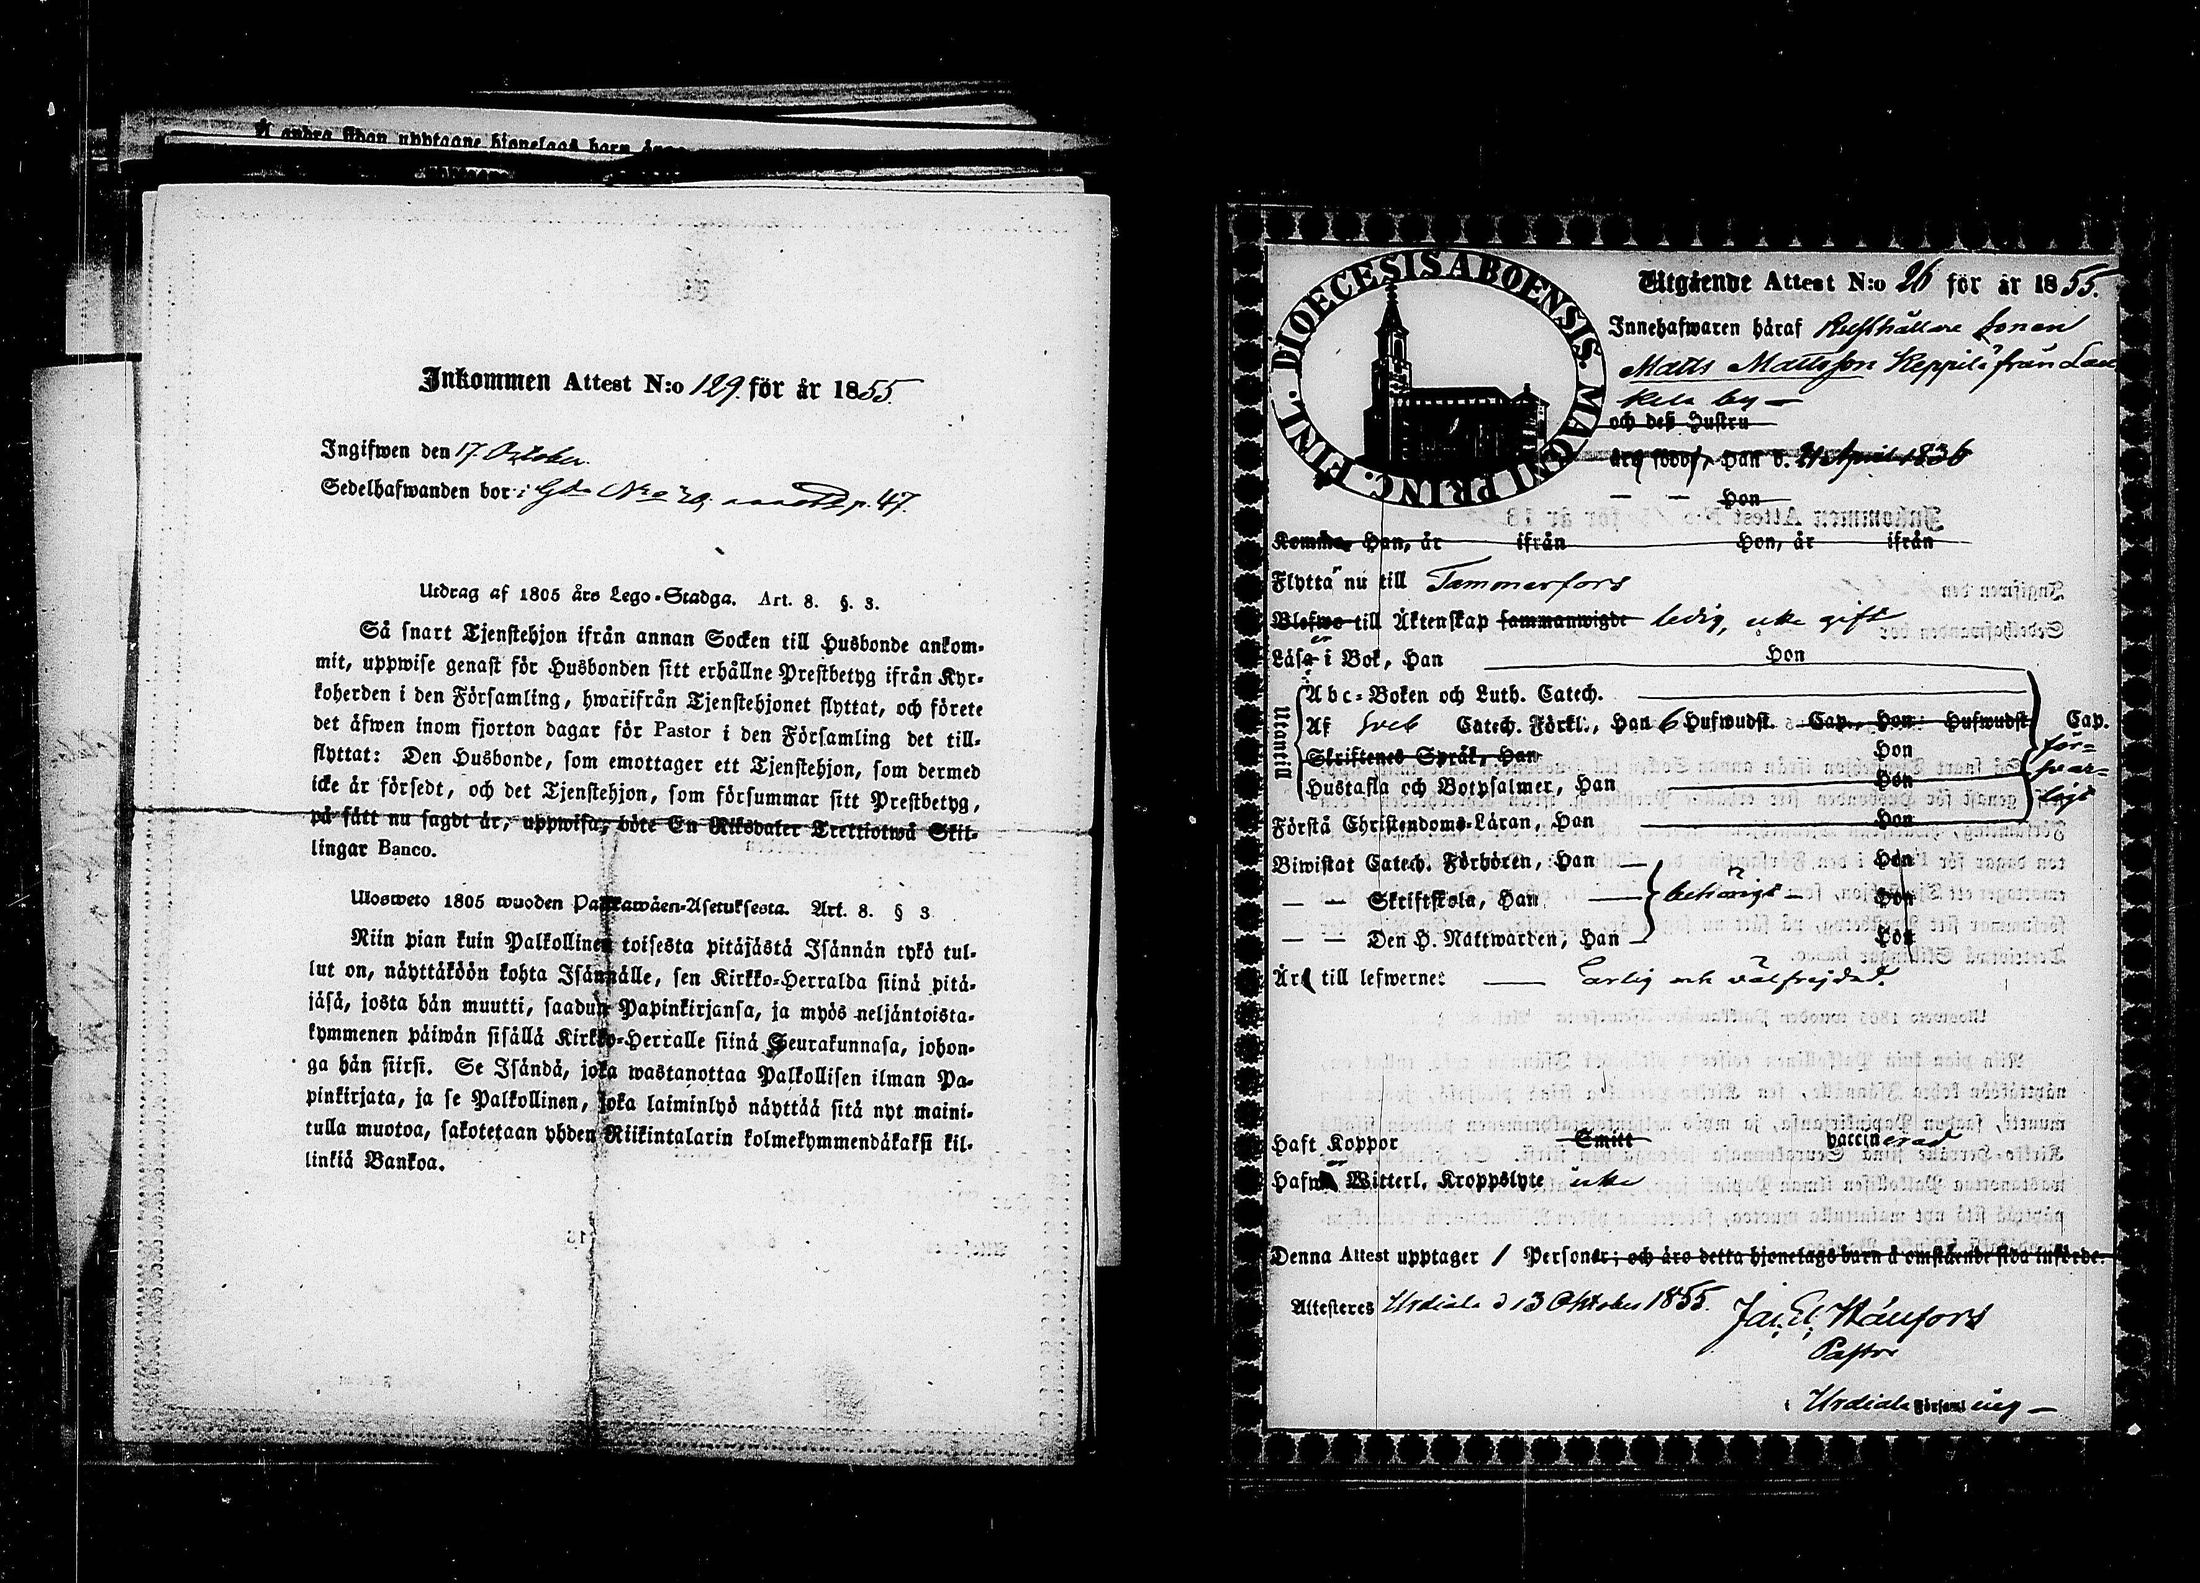 å andra sidan upptagne hjonelags barn äro
Inkommen Attest N:o 129. för år 1855.
Ingifwen den 17. October.
Sedelhafwanden bor i Gdn No 29 p. 47.
Utdrag af 1805 års Lego-Stadga. Art. 8. §. 3.
Så snart Tjenstehjon ifrån annan Socken till Husbonde ankom-
mit, uppwise genast för Husbonden sitt erhållne Prestbetyg ifrån Kyr-
koherden i den Församling, hwarifrån Tjenstehjonet flyttat, och förete
det äfwen inom fjorton dagar för Pastor i den Församling det till-
flyttat: Den Husbonde, som emottager ett Tjenstehjon, som dermed
icke är försedt, och det Tjenstehjon, som försummar sitt Prestbetyg,
på sätt nu sagdt är, uppwisa, böte En Riksdaler Trettiotwå Skil-
lingar Banco.
Ulosweto 1805 wuoden Palkkawäen-Asetuksesta. Art. 8. § 3
Niin pian kuin Palkollinen toisesta pitäjästä Isännän tykö tul-
lut on, näyttäköön kohta Isännälle, sen Kirkko-Herralda siinä pitä-
jäsä, josta hän muutti, saadun Papinkirjansa, ja myös neljäntoista-
kymmenen päiwän sisällä Kirkko-Herralle siinä Seurakunnasa, johon-
ga hän siirsi. Se Isändä, joka wastanottaa Palkollisen ilman Pa-
pinkirjata, ja se Palkollinen, joka laiminlyö näyttää sitä nyt maini-
tulla muotoa, sakotetaan yhden Riikintalarin kolmekymmendäkaksi kil-
linkiä Bankoa.
DIOECESIS ABOENSIS. MAGNI PRINC. FINL.
Utgående Attest N:o 26 för år 1855.
Innehafwaren häraf Rusthållare sonen
Matts Mattsson Keppilä från Lau
kela by —
och deß Hustru
äro födde, Han d. 21 April 1836
— — Hon
Komne, Han, år ifrån Hon, år ifrån
Flytta nu till Tammerfors
Blefwo till Äktenskap sammanwigde ledig, icke gift
Läsa i Bok, Han Hon
Utantill
Abc-Boken och Luth. Catech.
Af Sveb Catech. Förkl., Han 6 Hufwudst. Cap., Hon: Hufwudst Cap.
Skriftenes Språk, Han Hon
Hustafla och Botpsalmer, Han Hon
för-
svar-
ligt
Förstå Christendoms-Läran, Han Hon
Biwistat Catech. Förhören, Han — Hon
— — Skriftskola, Han — behörigt — Hon
— — Den H. Nattwarden, Han — Hon
Är till lefwernet — Ärlig och välfrejdad.
Haft Koppor Smitt vaccinerad
Hafwa Witterl. Kroppslyte icke
Denna Attest upptager 1 Personer; och äro detta hjonelags barn å omstående sida införde.
Attesteres Urdiala d 13 Oktober 1855.
Pastor
i Urdiala Församling —